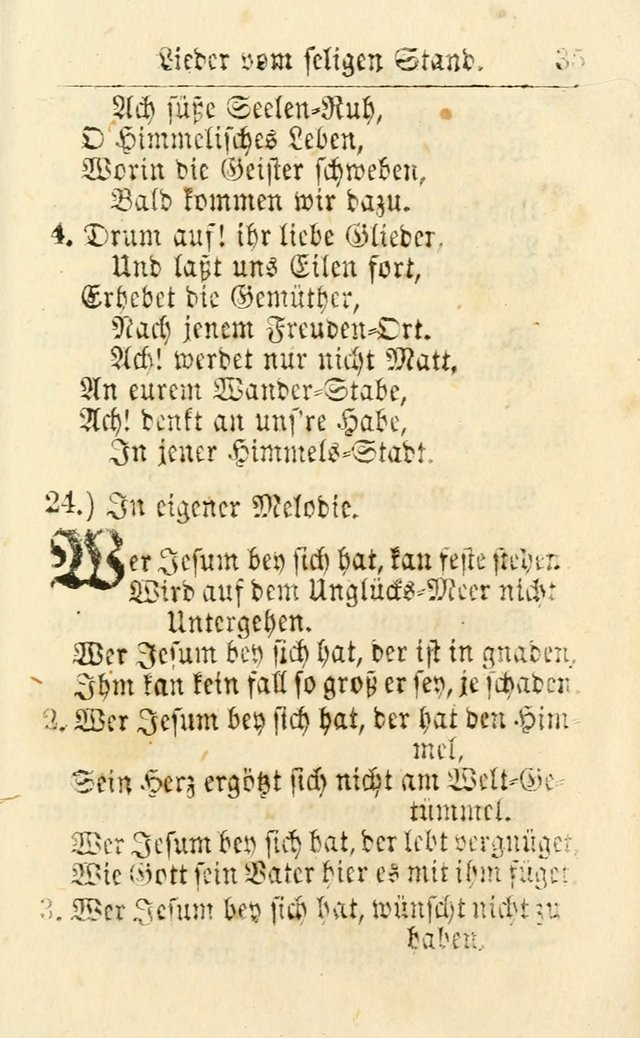 Lieder vom seligen Stand. 35
Ach süße Seelen-Ruh,
O Himmelisches Leben,
Worin die Geister schweben,
Bald kommen wir dazu.
4. Drum auf! ihr liebe Glieder,
Und laßt uns Eilen fort,
Erhebet die Gemüther,
Nach jenem Freuden-Ort.
Ach! werdet nur nicht Matt,
An eurem Wander-Stabe,
Ach! denkt an uns're Habe,
In jener Himmels-Stadt.
24.) In eigener Melodie.
Wer Jesum bey sich hat, kan feste stehen
Wird auf dem Unglücks-Meer nicht
Untergehen.
Wer Jesum bey sich hat, der ist in gnaden,
Ihm kan kein fall so groß er sey, je schaden
2. Wer Jesum bey sich hat, der hat den Him-
mel,
Sein Herz ergötzt sich nicht am Welt-Ge-
tümmel.
Wer Jesum bey sich hat, der lebt vergnüget,
Wie Gott sein Vater hier es mit ihm füget
3. Wer Jesum bey sich hat, wünscht nicht zu
haben,